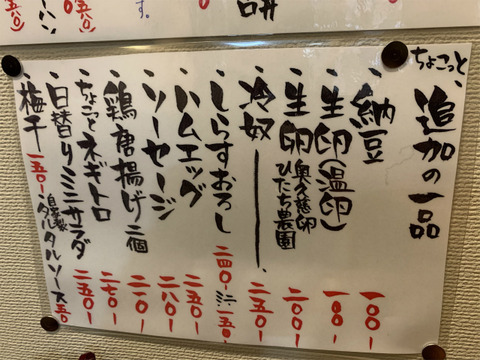 ちょこっと、
追加の一品
・納豆 一〇〇-
・生卵(温卵) 一〇〇-
・生卵 奥久慈卵 ひたち農園 二〇〇-
・冷奴 二五〇-
・しらすおろし 二四〇- 一五〇-
・ハムエッグ 二五〇-
・ソーセージ 二八〇-
・鶏唐揚げ二個 二一〇-
・ちょこっとネギトロ 二七〇-
・日替りミニサラダ 二五〇-
・梅干 一五〇- 自家製タルタルソース 五〇